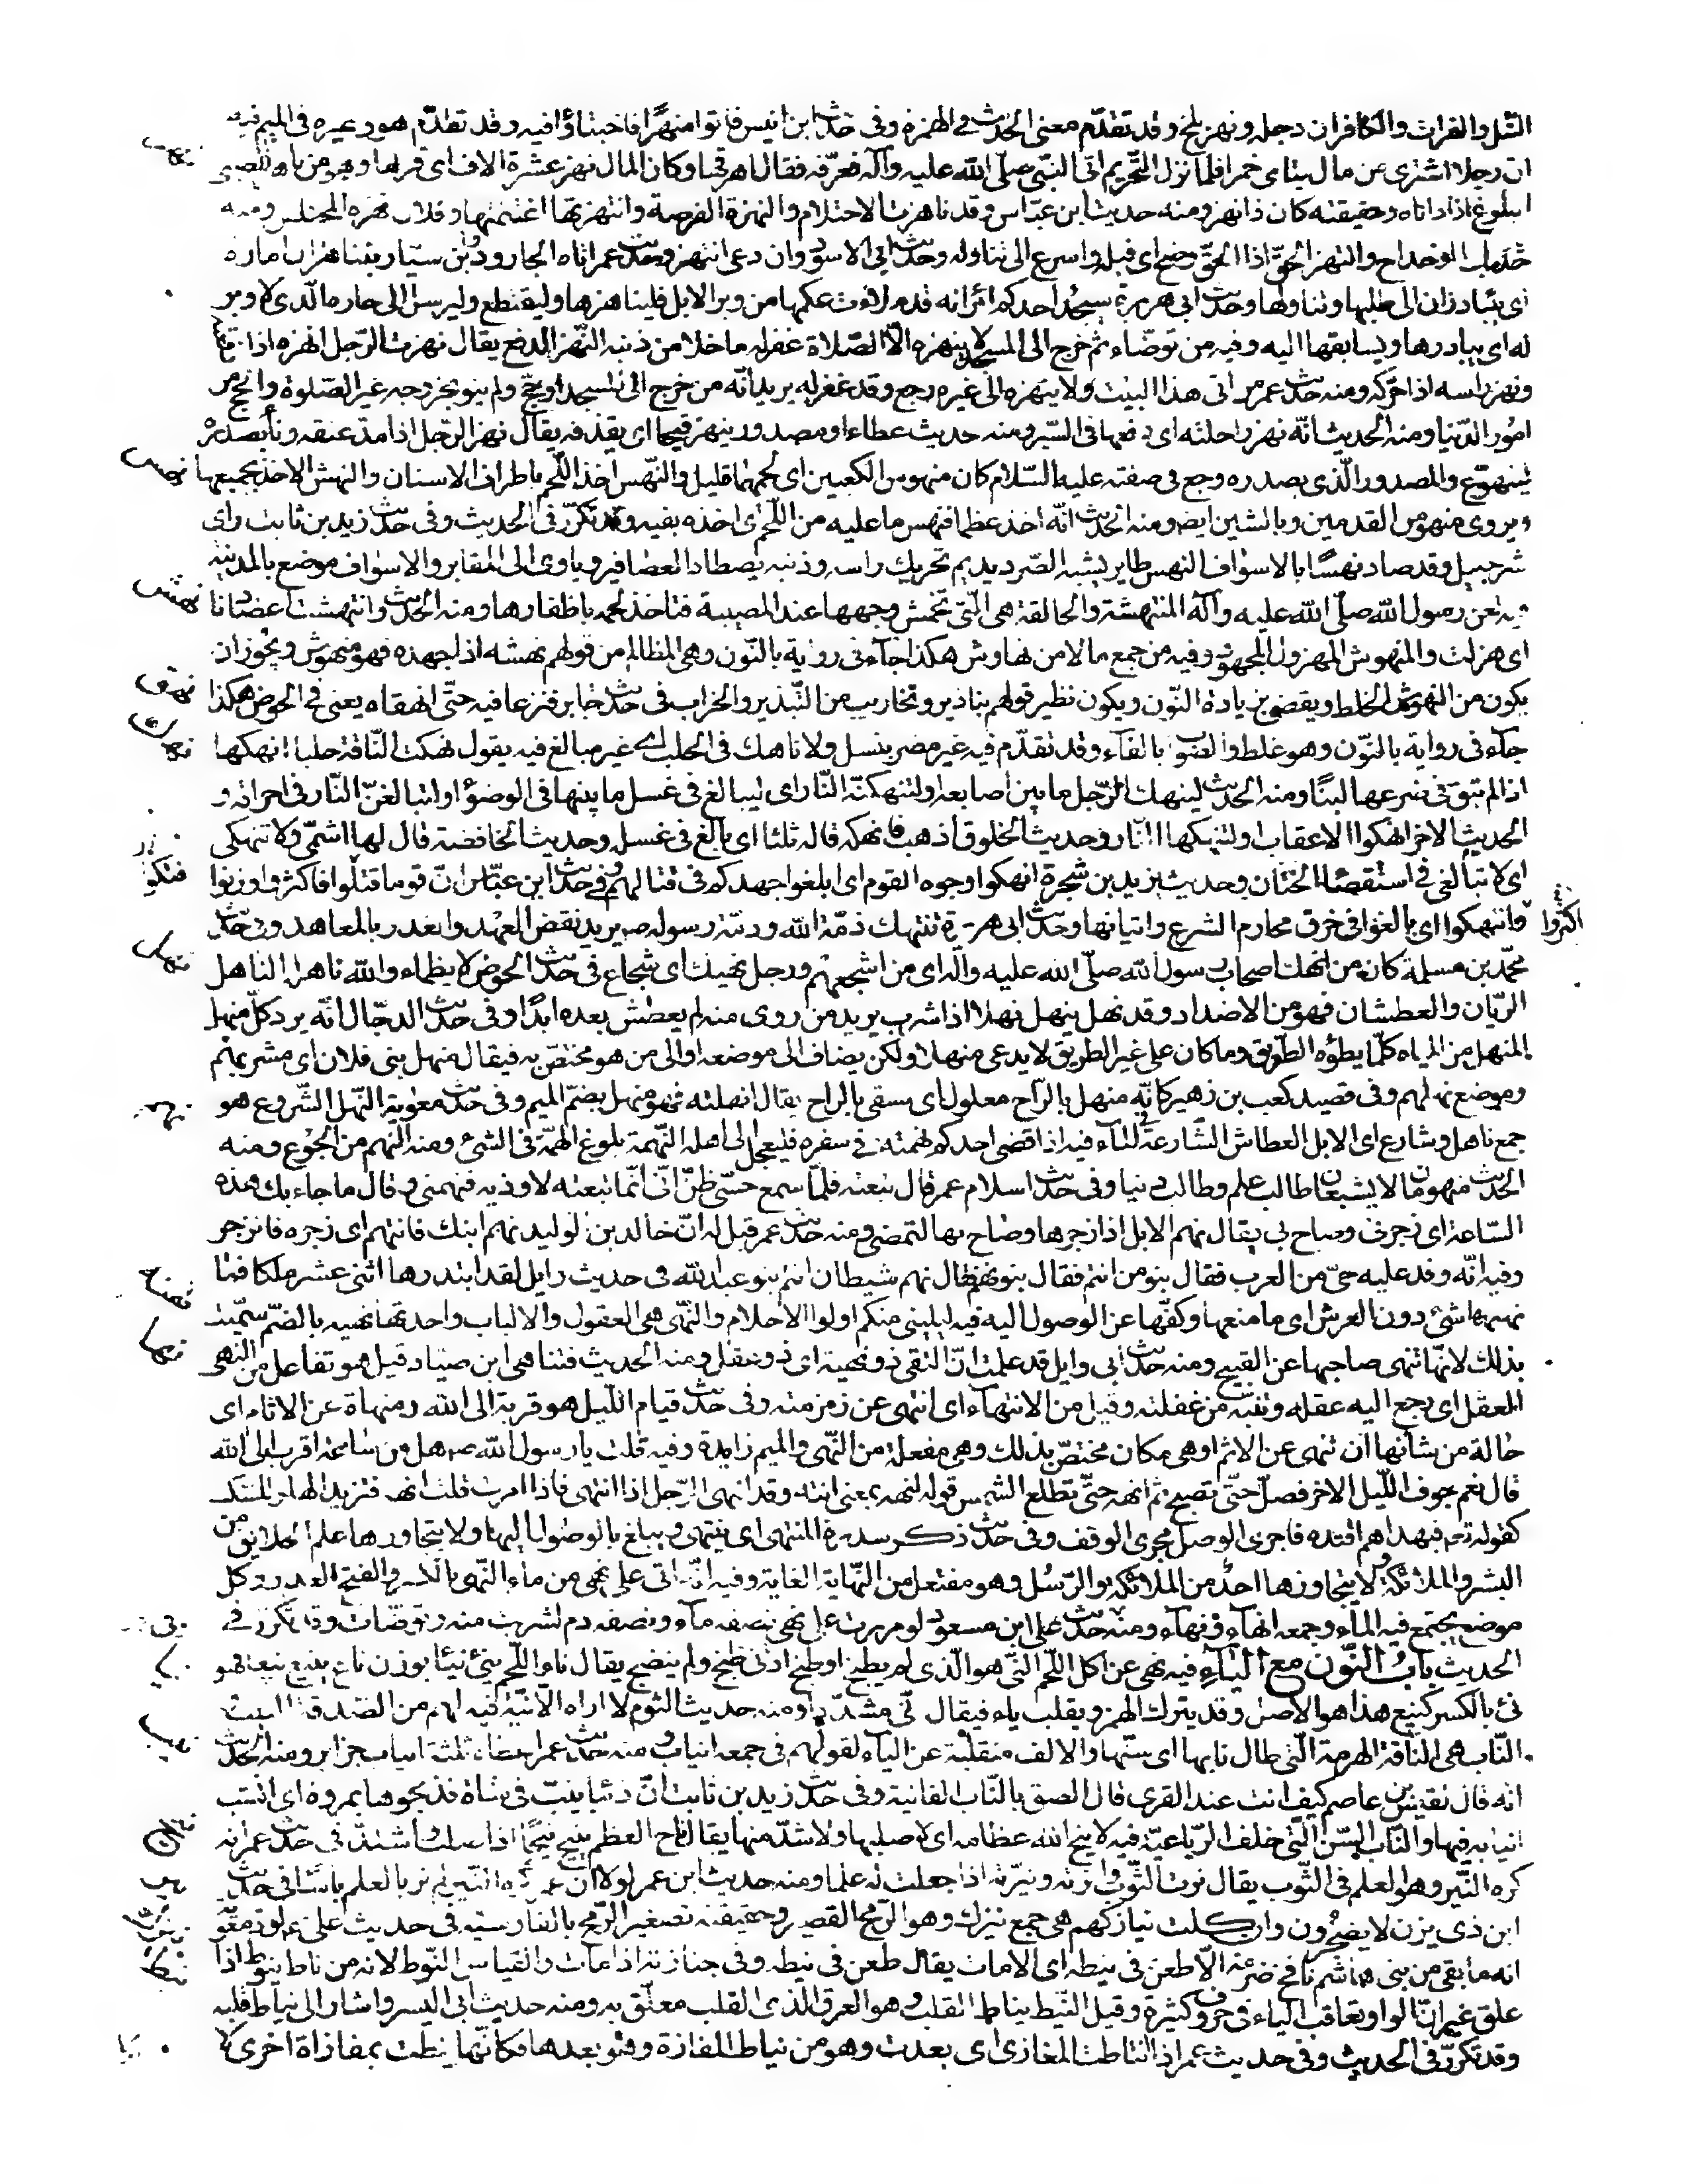 النيل والفرات والكافران دجله ونهر بلخ وقد تقدّم معنى الحديث فى الهمزه وفى حديث ابن انيس فاتوا منهرًا فاختبئوا فيه وقد تقدّم هو وغيره فى الميم فيه
ان رجلا اشترى من مال يتامى خمرا فلما نزل التحريم اتى النبىّ صلّى الله عليه وآله فعرّفه فقال اهرقها وكان المال نهز عشرة الاف اى قربها وهو من ناهز الصبى
البلوغ اذا داناه وحقيقته كان ذا نهز ومنه حديث ابن عبّاس وقد ناهزت الاحتلام والنهزة الفرصة وانتهزتها اغتنمتها وفلان نهزة المختلس ومنه
حديث ابى الدحداح وانتهز الحقّ اذا الحقّ وضح اى قبله واسرع الى تناوله وحديث ابى الاسود وان دعى انتهز وحديث عمر اتاه الجارود وابن سيّار يتناهزان امارة
اى يتبادران الى طلبها وتناولها وحديث ابى هريرة سيجد احدكم امرأته قد ملأت عكمها من وبر الابل فليناهزها وليقتطع وليرسل الى جاره الّذى لا وبر
له اى يبادرها ويسابقها اليه وفيه من توضّاء ثم خرج الى المسجد لا ينهزه الّا الصّلاة غفر له ما خلا من ذنبه النّهز الدفع يقال نهزت الرّجل انهزه اذا دفعته
ونهز راسه اذا حرّكه ومنه حديث عمر من اتى هذا البيت ولا ينهزه الى غيره رجع وقد غفر له يريد انّه من خرج الى المسجد او حجّ ولم ينو بخروجه غير الصّلوة والحج من
امور الدّنيا ومنه الحديث انّه نهز راحلته اى دفعها فى السّير ومنه حديث عطاء او مصدور ينهز قيحا اى يقذفه يقال نهز الرّجل اذا مدّ عنقه ونأى بصدره
ليتهوّع والمصدور الّذى بصدره وجع فى صفته عليه السّلام كان منهوس الكعبين اى لحمهما قليل والنّهس اخذ اللّحم باطراف الاسنان والنهش الاخذ بجميعها
نهس
ويروى منهوس القدمين وبالشين ايض ومنه الحديث انّه اخذ عظما فنهس ما عليه من اللّحم اى اخذه بفيه وقد تكرّر فى الحديث وفى حديث زيد بن ثابت راى
شرحبيل وقد صاد نهسًا بالاسواف النهس طاير يشبه الصّرد يديم تحريك راسه وذنبه يصطاد العصافير وياوى الى المقابر والاسواف موضع بالمدينة
فيه لعن رسول الله صلّى الله عليه وآله المنتهشة والحالقة هى الّتى تخمش وجهها عند المصيبة فتاخذ لحمه باظفارها ومنه الحديث وانتهشت اعضادنا
نهش
اى هزلت والمنهوش المهزول المجهود وفيه من جمع مالا من نهاوش هكذا جاء فى رواية بالنّون وهى المظالم من قولهم نهشه اذا جهده فهو منهوش ويجوز ان
يكون من الهوش الخلط ويقضى بزيادة النّون ويكون نظير قولهم تباذير وتخاريب من التّبذير والخراب فى حديث جابر فنزعا فيه حتّى انهقاه يعنى فى الحوض هكذا
نهق
جاء فى رواية بالنّون وهو غلط والصّواب بالفاء وقد تقدّم فيه غير مضر بنسل ولا ناهك فى الحلب اى غير مبالغ فيه يقول نهكت النّاقة حلبا انهكها
نهك
اذا لم تبق فى ضرعها لبنًا ومنه الحديث لينهك الرّجل ما بين اصابعه او لتنهكنّه النّار اى ليبالغ فى غسل ما بينها فى الوضؤ او لتبالغنّ النّار فى احراقه و
الحديث الاخر انهكوا الاعقاب او لتنهكها النّار وحديث الخلوق اذهب فانهكه قاله ثلثا اى بالغ فى غسله وحديث الخافضة قال لها اشمّى ولا تنهكى
اى لا تبالغى فى استقصاء الختان وحديث يزيد بن شجرة انهكوا وجوه القوم اى ابلغوا جهدكم فى قتالهم وفى حديث ابن عبّاس انّ قوما قتلوا فاكثروا وزنوا
وانتهكوا اى بالغوا فى خرق محارم الشرع واتيانها وحديث ابى هريرة تنتهك ذمّة الله وذمّة رسوله صم يريد نقض العهد والغدر بالمعاهد وفى حديث
اكثروا
محمّد بن مسلمة كان من انهك اصحاب رسول الله صلّى الله عليه وآله اى من اشجعهم ورجل نهيك اى شجاع فى حديث الحوض لا يظماء والله ناهله الناهل
نهل
الريّان والعطشان فهو من الاضداد وقد نهل ينهل نهلا اذا شرب يريد من روى منه لم يعطش بعده ابدًا وفى حديث الدجّال انّه يرد كلّ منهل
المنهل من المياه كلّما يطؤه الطّريق وما كان على غير الطريق لا يدعى منهلا ولكن يضاف الى موضعه او الى من هو مختصّ به فيقال منهل بنى فلان اى مشربهم
وموضع نهلهم وفى قصيد كعب بن زهير كانّه منهل بالرّاح معلول اى مسقى بالراح يقال انهلته فهو منهل بضمّ الميم وفى حديث معوية النّهل الشّروع هو
جمع ناهل وشارع اى الابل العطاش الشّارعة فى الماء فيه اذا قضى احدكم نهمته فى سفره فليعجل الى اهله النّهمة بلوغ الهمّة فى الشئ ومنه النهم من الجوع ومنه
نهم
الحديث منهومان لا يشبعان طالب علم وطالب دنيا وفى حديث اسلام عمر قال تبعته فلمّا سمع حسّى ظنّ انّى انّما تبعته لاوذيه فنهمنى وقال ما جاء بك هذه
السّاعة اى زجرنى وصاح بى يقال نهم الابل اذا زجرها وصاح بها لتمضى ومنه حديث عمر قيل له انّ خالد بن الوليد نهم ابنك فانتهم اى زجره فانزجر
وفيه انّه وفد عليه حىّ من العرب فقال بنو من انتم فقال بنو نهم فقال نهم شيطان انتم بنو عبد الله فى حديث وايل لقد ابتدرها اثنى عشر ملكا فما
نهنهها شئ دون العرش اى ما منعها وكفّها عن الوصول اليه فيه ليلينى منكم اولوا الاحلام والنّهى هى العقول والالباب واحدتها نهيه بالضّم سمّيت
نها
بذلك لانّها تنهى صاحبها عن القبيح ومنه حديث ابى وايل قد علمت انّ التقى ذو نهية اى ذو عقل ومنه الحديث فتناهى ابن صيّاد قيل هو تفاعل من النهى
العقل اى رجع اليه عقله وتنبّه من غفلته وقيل من الانتهاء اى انتهى عن زمزمته وفى حديث قيام اللّيل هو قربة الى الله ومنهاة عن الاثام اى
حالة من شأنها ان تنهى عن الاثم او هى مكان مختصّ بذلك وهى مفعلة من النّهى والميم زايدة وفيه قلت يا رسول الله صم هل من ساعة اقرب الى الله
قال نعم جوف اللّيل الاخر فصلّ حتّى تصبح ثمّ انهه حتّى تطلع الشمس قوله انهه بمعنى انته وقد انهى الرّجل اذا انتهى فاذا امرت قلت انهه فتزيد الهاء للسكت
كقوله تع فبهداهم اقتده فاجرى الوصل مجرى الوقف وفى حديث ذكر سدرة المنتهى اى ينتهى ويبلغ بالوصول اليها ولا يتجاوزها علم الخلايق من
البشر والملائكة ولا يتجاوزها احد من الملائكة والرّسل وهو مفتعل من النّهاية الغاية وفيه انّه اتى على نهى من ماء النّهى بالكسر والفتح الغدير وكل
موضع يجتمع فيه الماء وجمعه انهاء ونهاء ومنه حديث ابن مسعود لو مررت على نهى نصفه ماء ونصفه دم لشربت منه وتوضّات وقد تكرر فى
الحديث باب النّون مع الياء فيه نهى عن اكل اللّحم النّئ هو الّذى لم يطبخ او طبخ ادنى طبخ ولم ينضج يقال ناء اللّحم ينئ نيئا بوزن ناع ينيع نيعا فهو
نئ بالكسر كنيع هذا هو الاصل وقد يترك الهمز ويقلب ياء فيقال نىّ مشدّدا ومنه حديث الثوم لا اراه الّا نيّئه فيه لهم من الصّدقة
النّاب هى النّاقة الهرمة الّتى طال نابها اى سنّها والالف منقلبة عن الياء لقولهم فى جمعه انياب ومنه حديث عمر اعطاه ثلثة انياب جزاير ومنه الحديث
نيب
انه قال لقيس بن عاصم كيف انت عند القرى قال الصق بالنّاب الفانية وفى حديث زيد بن ثابت انّ ذئبا نيّب فى شاة فذبحوها بمروة اى انشب
انيابه فيها والنّاب السّنّ الّتى خلف الرّباعيّة فيه لا نيّح الله عظامه اى لا صلبها ولا شدّ منها يقال ناح العظم ينيح نيحًا اذا صلب واشتدّ فى حديث عمر انه
كره النّير وهو العلم فى الثّوب يقال نرت الثّوب وانرته ونيّرته اذا جعلت له علما ومنه حديث ابن عمر لولا ان عمر كره النّير لم نر بالعلم باسًا فى حديث
ابن ذى يزن لا يضجرون وان كلّت نيازكهم هى جمع نيزك وهو الرّمح القصير وحقيقته تصغير الرّمح بالفارسيّة فى حديث علىّ ع لودّ معوية
انه ما بقى من بنى هاشم نافخ ضرمة الّا طعن فى نيطه اى الامات يقال طعن فى نيطه وفى جنازته اذا مات والقياس النّوط لانه من ناط ينوط اذا
نيط
علق غير انّ الواو تعاقب الياء فى حروف كثيرة وقيل النّيط نياط القلب وهو العرق الذى القلب معلّق به ومنه حديث ابى اليسر واشار الى نياط قلبه
وقد تكرّر فى الحديث وفى حديث عمر اذا انتاطت المغازى اى بعدت وهو من نياط المفازة وهو بعدها فكانّها نيطت بمفازاة اخرى لا